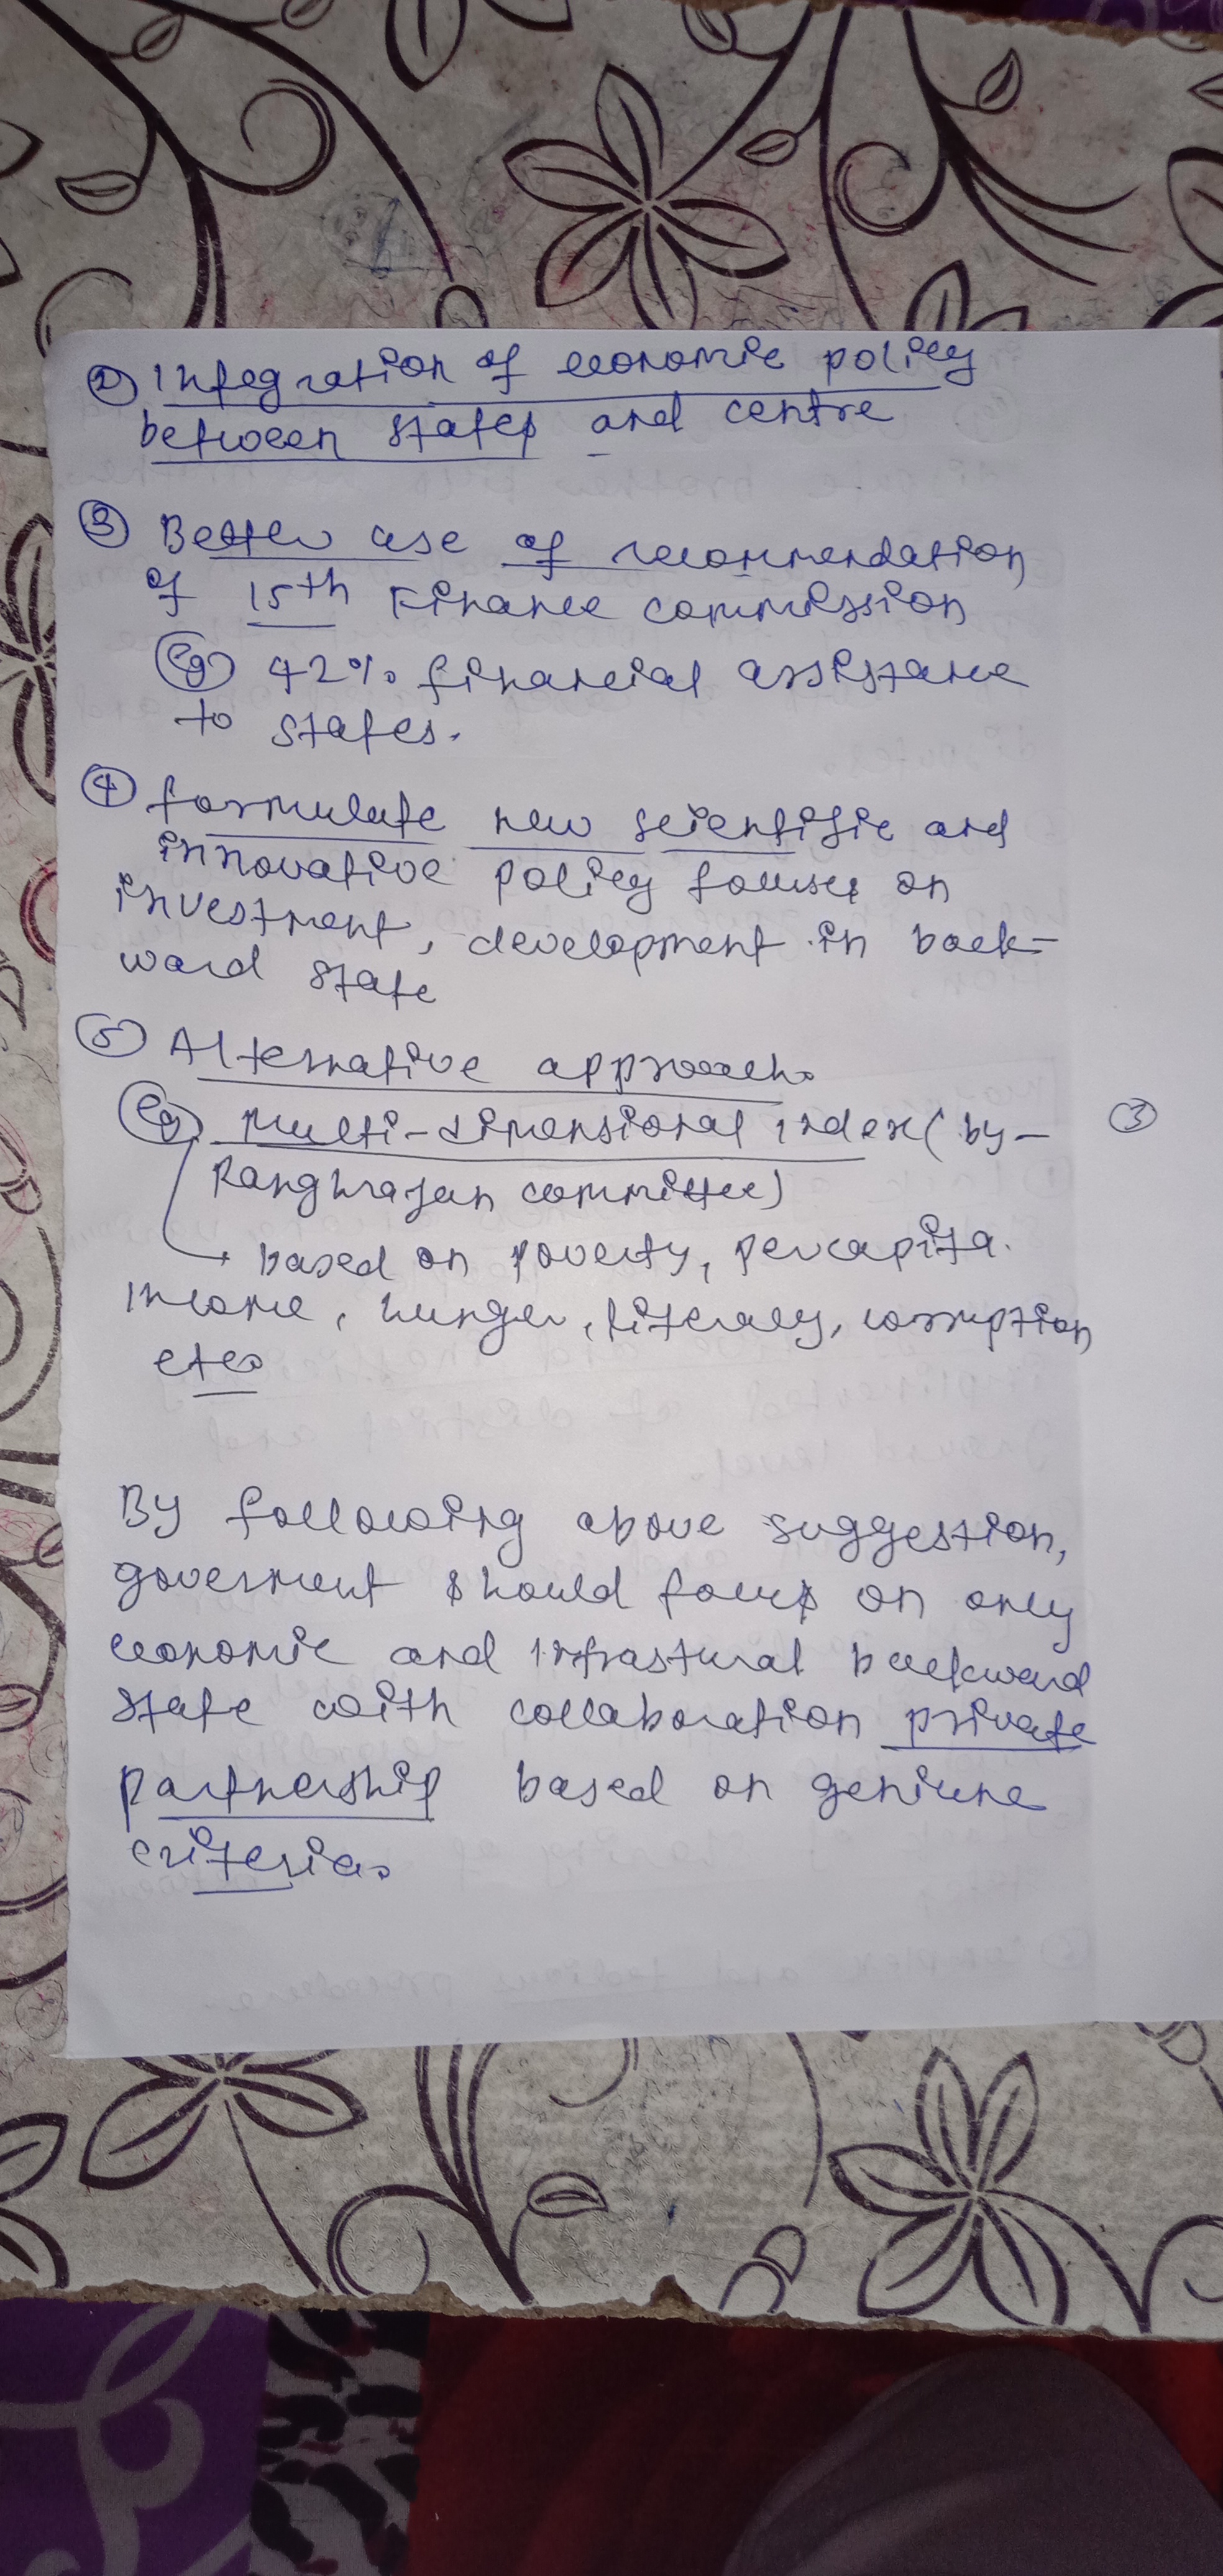 ② Integration of economic policy
between states and centre
③ Better use of recommendation
of 15th Finance commission
eg 42% financial assistance
to states.
④ formulate new scientific and
innovative policy focuses on
investment, development in back-
ward state
⑤ Alternative approach.
eg multi-dimensional index (by-
Ranghrajan committee)
→ based on poverty, percapita.
income, hunger, literacy, corruption
etc.
③
By following above suggestion,
goverment should focus on only
economic and infrastural backward
state with collaboration private
partnership based on geniune
criteria.